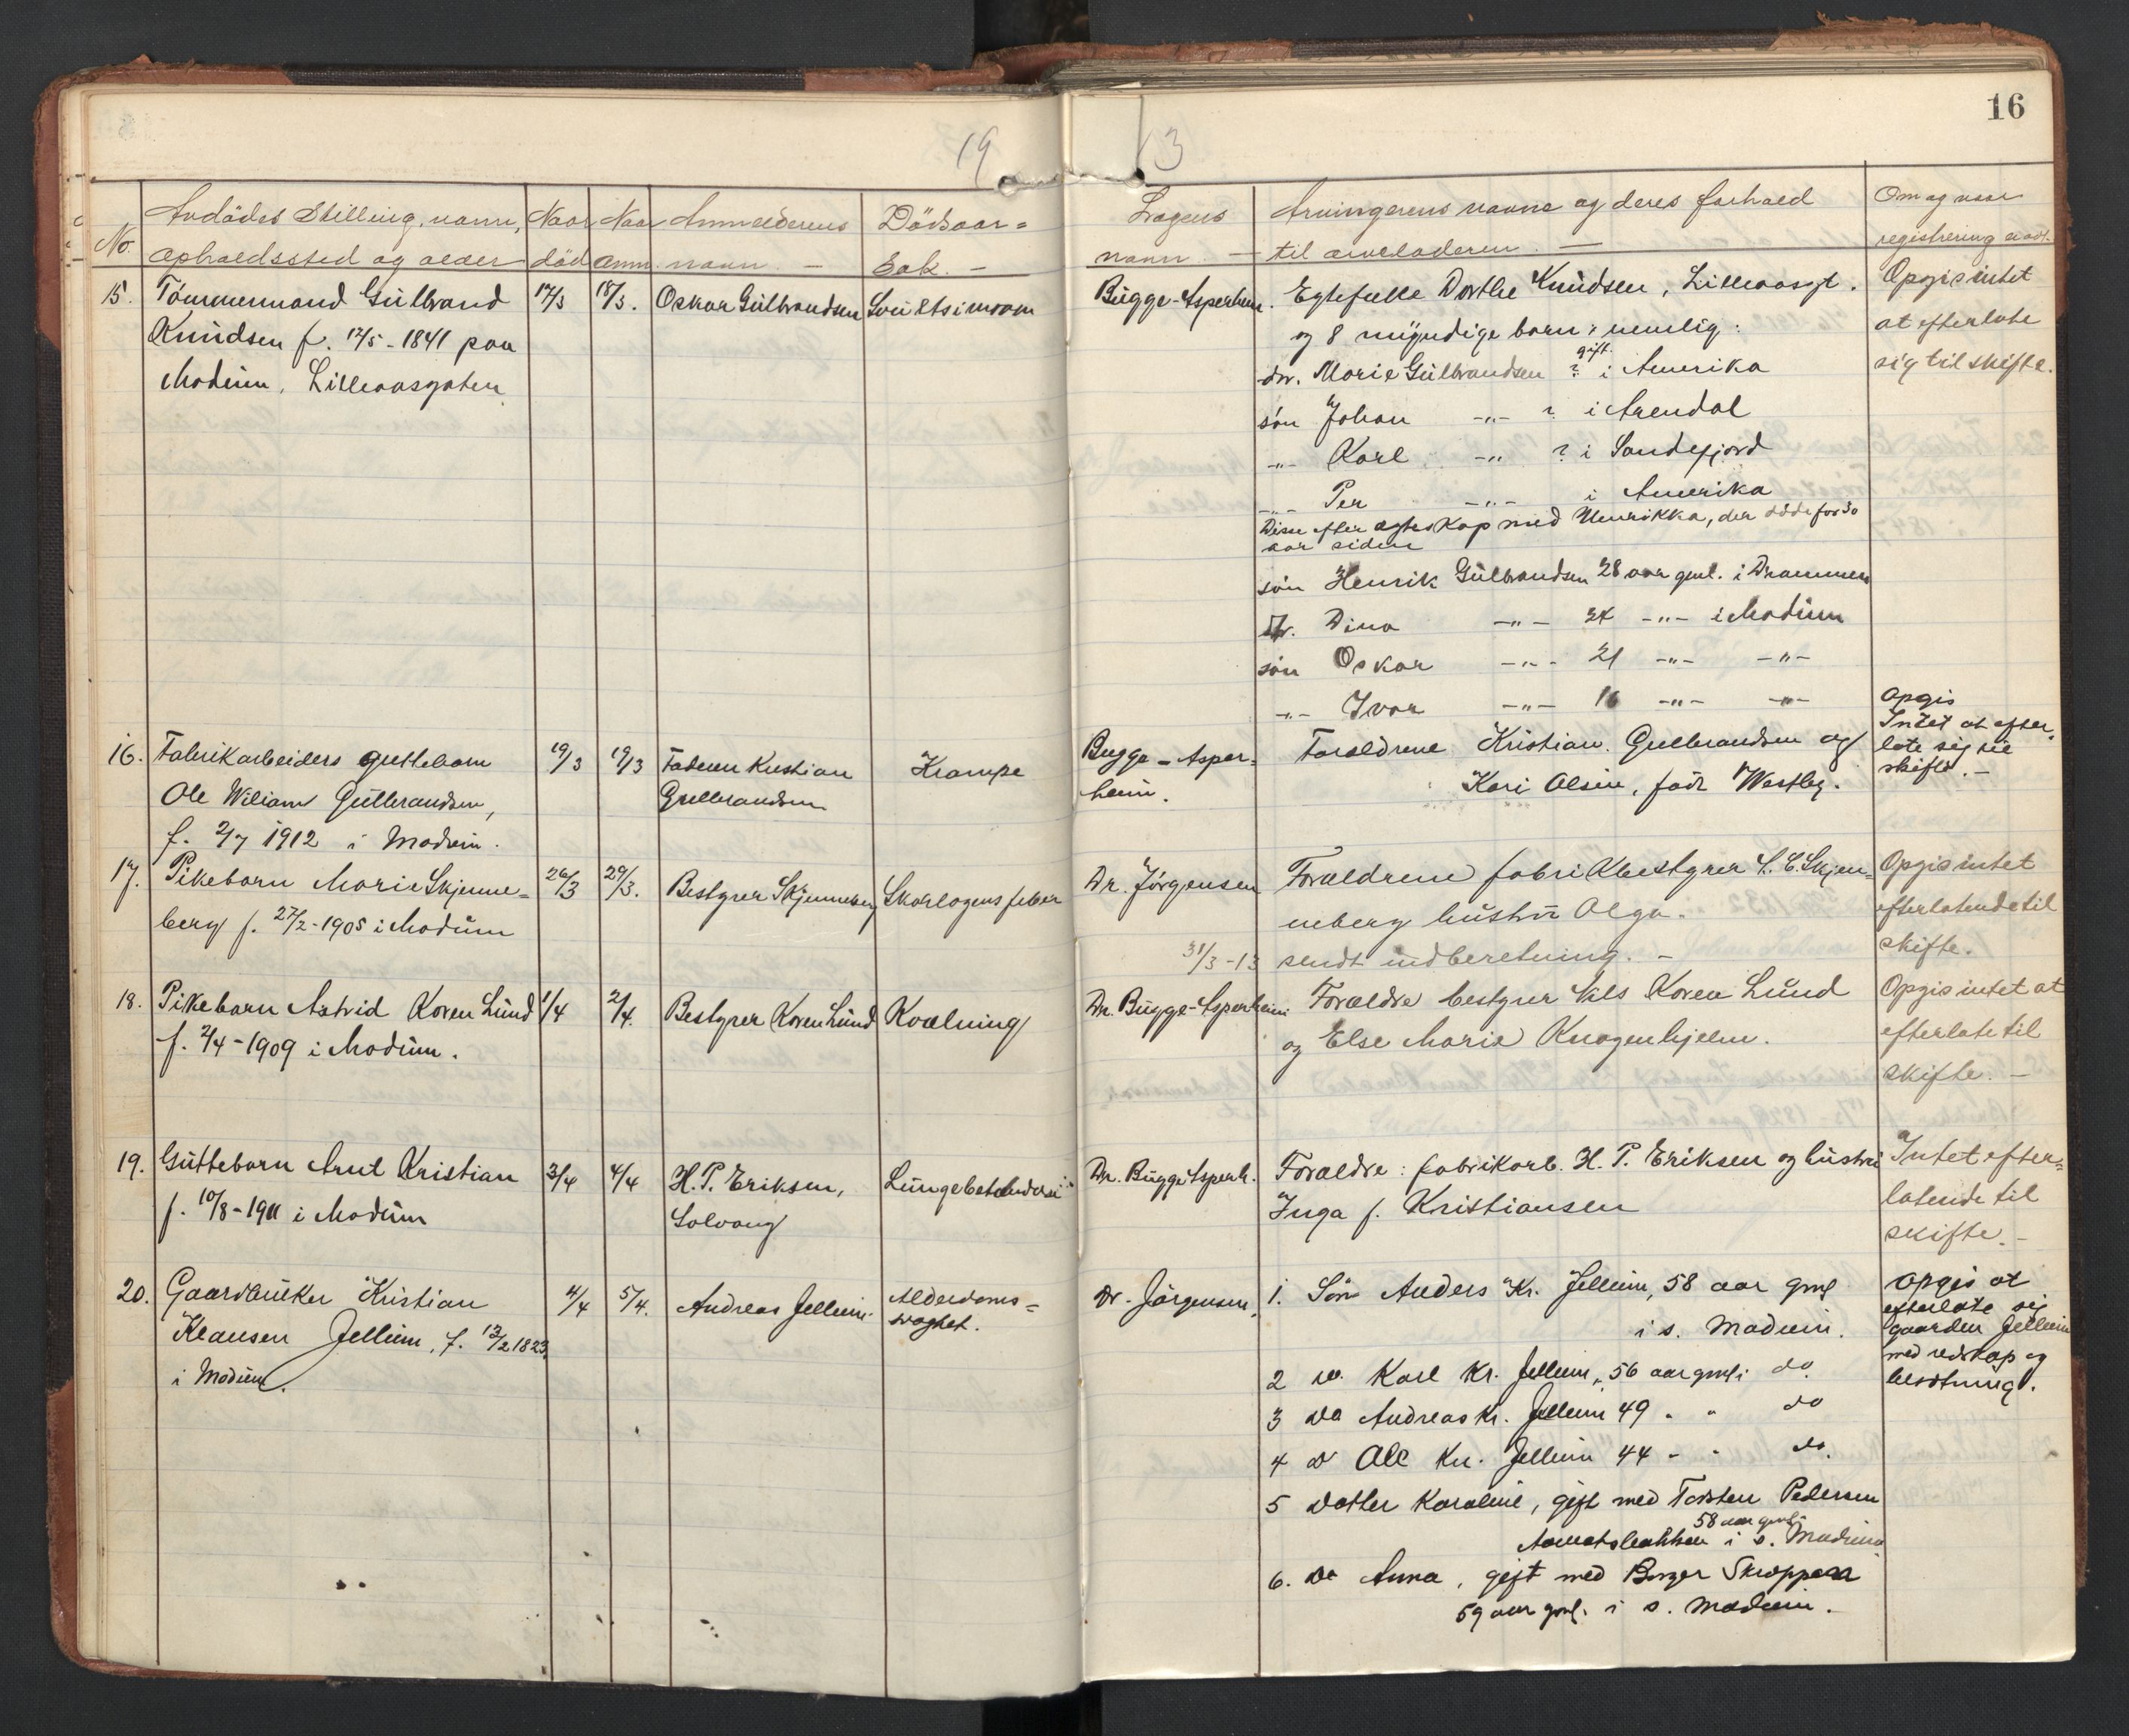 16
19 13
No. Avdödes Stilling, navn, opholdssted og alder
Naar död
Naar anm.
Anmelderens navn. —
Dödsaar=
sak. —
Lægens navn. —
Arvingerens navne og deres forhold
til arveladeren. —
Om og naar
registrering
15. Tömmermand Gulbrand
Knudsen f. 12/5-1841 paa
Modum, Lilleaasgaten
17/3 18/3. Oskar Gulbrandsen
Bugge-Asperheim.
Egtefelle Dorthe Knudsen, Lilleaasgt.
og 8 myndige barn: nemlig:
dtr. Marie Gulbrandsen ? gift i Amerika
sön Johan -"- ? i Arendal
-"- Karl -"- ? i Sandefjord
-"- Per -"- i Amerika
Disse efter egteskap med Henrikka, der döde for 30
aar siden
sön Henrik Gulbrandsen 28 aar gml. i Drammen
dtr. Dina -"- 24 -"- i Modum
sön Oskar -"- 21 -"- -"-
-"- Ivar -"- 16 -"- -"-
Opgis intet
at efterlate
sig til skifte.
16. Fabrikarbeiders guttebarn
Ole Wiliam Gulbrandsen,
f. 2/7 1912 i Modum.
19/3 19/3 Faderen Kristian
Gulbrandsen
Krampe
Bugge-Asper=
heim.
Forældrene Kristian Gulbrandsen og
Kari Olsen, född Westby.
Opgis
Intet at efter=
late sig til
skifte. —
17. Pikebarn Marie Skjenne=
berg f. 27/2-1905 i Modum
26/3 29/3. Bestyrer Skjenneberg
Skarlagensfeber
Dr. Jörgensen
Forældrene fabrikbestyrer L. C. Skjen=
neberg hustru Olga.
31/3-13 sendt indberetning. —
Opgis intet
efterlatende til
skifte.
18. Pikebarn Astrid Koren Lund
f. 2/4-1909 i Modum.
1/4 2/4. Bestyrer Koren Lund
Kvælning
Dr. Bugge-Asperheim
Forældre bestyrer Nils Koren Lund
og Else Marie Knagenhjelm.
Opgis intet at
efterlate til
skifte. —
19. Guttebarn Arnt Kristian
f. 10/8-1911 i Modum
3/4 4/4 H. P. Eriksen,
Solvang
Lungebetendelse
Dr. Bugge Asperh.
Forældre: fabrikarb. H. P. Eriksen og hustru
Inga f. Kristiansen
Intet efter=
latende til
skifte. —
20. Gaardbruker Kristian
Klausen Jellum, f. 12/2 1823,
i Modum.
4/4 5/4. Andreas Jellum.
Alderdoms=
svaghet.
Dr. Jörgensen,
1. Sön Anders Kr. Jellum, 58 aar gml
i s. Modum.
2 do. Karl Kr. Jellum, 56 aar gml i do.
3 do Andreas Kr. Jellum 49 " " do
4 do Ole Kr. Jellum 44 - " do.
5 Datter Karoline, gift med Torsten Pedersen
58 aar gml.
i s. Modum
6. do Anna, gift med Borger Skroppen
59 aar gml. i s. Modum.
Opgis at
efterlate sig
gaarden Jellum
med redskap og
besætning.